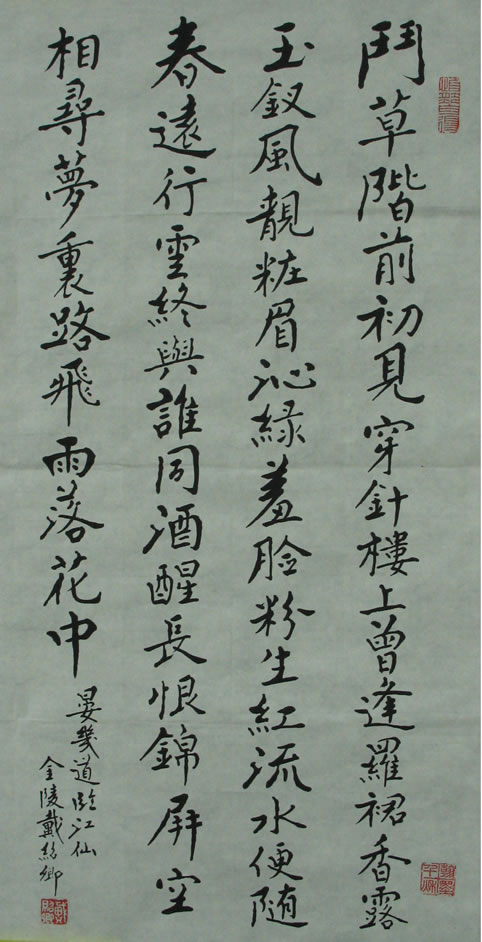 鬥草階前初見穿針樓上曾逢羅裙香露
玉釵風靚粧眉沁緑羞臉粉生紅流水便隨
春遠行雲終與誰同酒醒長恨錦屏空
相尋夢裏路飛雨落花中
晏幾道臨江仙
金陵戴紹卿